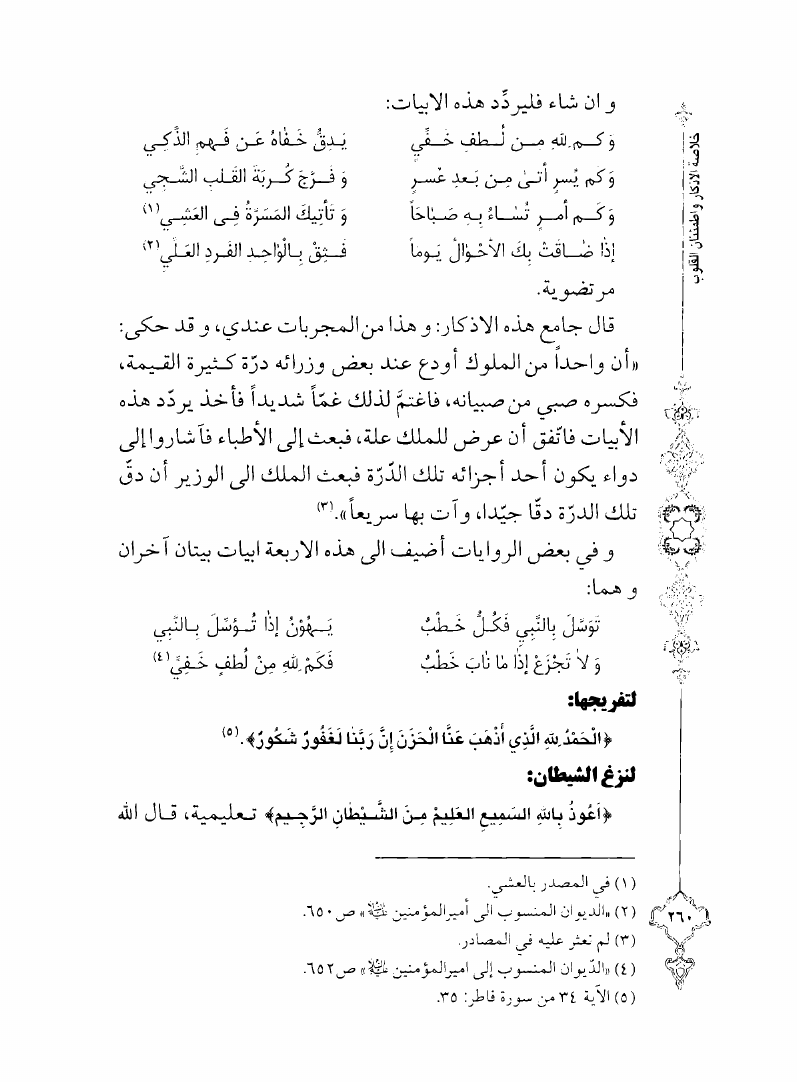 خلاصة الاذكار واطمئنان القلوب
و ان شاء فليردِّد هذه الابيات:
وَ كَم لِلّٰهِ مِن لُطفٍ خَفِّي يَدِقُّ خَفٰاهُ عَن فَهمِ الذَّكِي
وَ كَم يُسرٍ أتىٰ مِن بَعدِ عُسرٍ وَ فَرَّجَ كُربَةَ القَلبِ الشَّجي
وَ كَم أمرٍ تُسٰاءُ بِهِ صَبٰاحَاً وَ تَأتِيكَ المَسَرَّةُ فِى العَشِي(١)
إذٰا ضٰاقَتْ بِكَ الاَحْوٰالُ يَوماً فَثِقْ بِالْوٰاحِدِ الفَردِ العَلَي(٢)
مرتضوية.
قال جامع هذه الاذكار: و هذا من المجربات عندي، و قد حكى:
«أن واحداً من الملوك أودع عند بعض وزرائه درّة كثيرة القيمة،
فكسره صبي من صبيانه، فاغتمَّ لذلك غمّاً شديداً فأخذ يردّد هذه
الأبيات فاتّفق أن عرض للملك علة، فبعث إلى الأطباء فآشاروا إلى
دواء يكون أحد أجزائه تلك الدّرّة فبعث الملك الى الوزير أن دقّ
تلك الدرّة دقّا جيّدا، وآت بها سريعاً».(٣)
و في بعض الروايات أضيف الى هذه الاربعة ابيات بيتان آخران
و هما:
تَوَسَّلَ بِالنَّبِي فَكُلُّ خَطْبٌ يَهُوْنُ إذٰا تُوُسِّلَ بِالنَّبِي
وَ لاٰ تَجْزَعْ إذٰا مٰا نٰابَ خَطْبٌ فَكَمْ لِلّٰهِ مِنْ لُطفٍ خَفِيَّ(٤)
لتفريجها:
﴿الْحَمْدُ لِلّٰهِ الَّذِي أَذْهَبَ عَنَّا الْحَزَنَ إِنَّ رَبَّنٰا لَغَفُورٌ شَكُورٌ﴾.(٥)
لنزغ الشيطان:
﴿اَعُوذُ بِاللهِ السَمِيعِ العَلِيمْ مِنَ الشَّيْطٰانِ الرَّجِيمِ﴾ تعليمية، قال الله
(١) في المصدر بالعشي.
(٢) «الديوان المنسوب الى أميرالمؤمنين ﷷ» ص٦٥٠.
(٣) لم نعثر عليه في المصادر.
(٤) «الدّيوان المنسوب إلى اميرالمؤمنين ﷷ» ص٦٥٢.
(٥) الآية ٣٤ من سورة فاطر: ٣٥.
٢٦٠